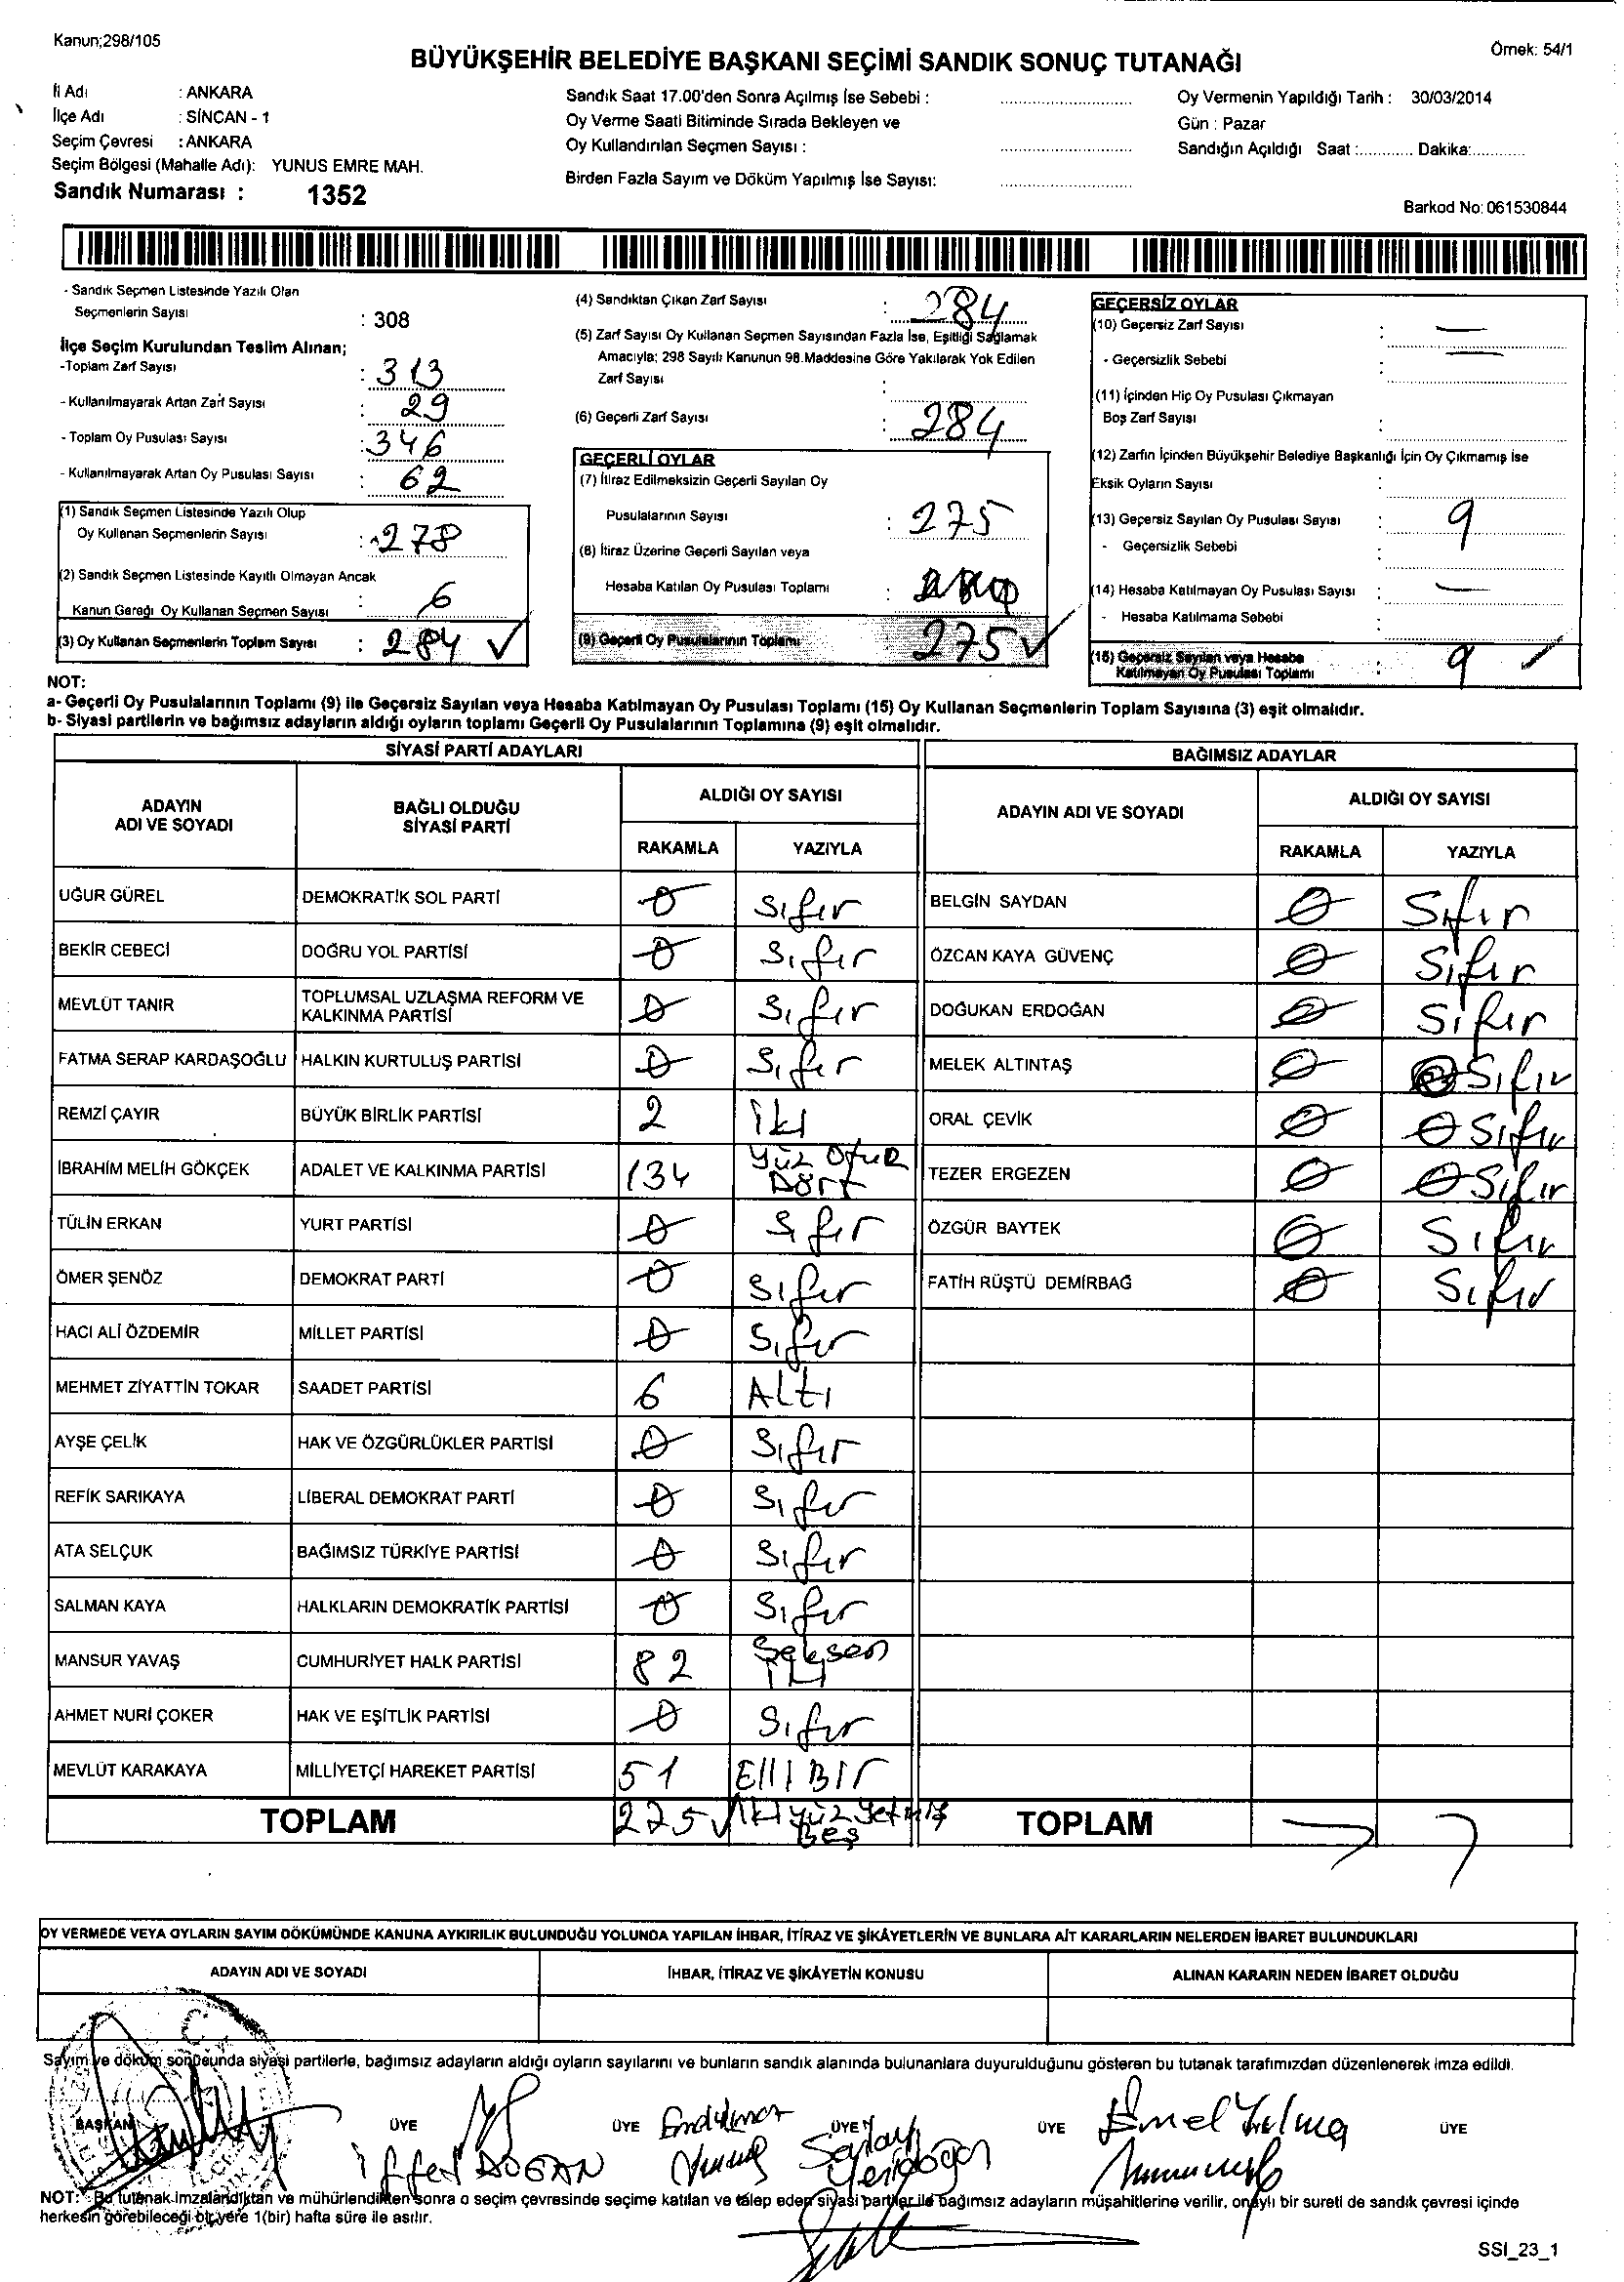 Kanun;298/105
Örnek: 54/1
BÜYÜKŞEHİR BELEDİYE BAŞKANI SEÇİMİ SANDIK SONUÇ TUTANAĞI
İl Adı : ANKARA
İlçe Adı : SİNCAN - 1
Seçim Çevresi : ANKARA
Seçim Bölgesi (Mahalle Adı): YUNUS EMRE MAH.
Sandık Numarası : 1352
Sandık Saat 17.00'den Sonra Açılmış İse Sebebi :
Oy Verme Saati Bitiminde Sırada Bekleyen ve
Oy Kullandırılan Seçmen Sayısı :
Birden Fazla Sayım ve Döküm Yapılmış İse Sayısı:
Oy Vermenin Yapıldığı Tarih : 30/03/2014
Gün : Pazar
Sandığın Açıldığı Saat :............ Dakika:............
Barkod No: 061530844
- Sandık Seçmen Listesinde Yazılı Olan
Seçmenlerin Sayısı : 308
İlçe Seçim Kurulundan Teslim Alınan;
-Toplam Zarf Sayısı : 313
- Kullanılmayarak Artan Zarf Sayısı : 29
- Toplam Oy Pusulası Sayısı : 346
- Kullanılmayarak Artan Oy Pusulası Sayısı : 62
(1) Sandık Seçmen Listesinde Yazılı Olup
Oy Kullanan Seçmenlerin Sayısı : 278
(2) Sandık Seçmen Listesinde Kayıtlı Olmayan Ancak
Kanun Gereği Oy Kullanan Seçmen Sayısı : 6
(3) Oy Kullanan Seçmenlerin Toplam Sayısı : 284 ✓
(4) Sandıktan Çıkan Zarf Sayısı : 284
(5) Zarf Sayısı Oy Kullanan Seçmen Sayısından Fazla İse, Eşitliği Sağlamak
Amacıyla; 298 Sayılı Kanunun 98.Maddesine Göre Yakılarak Yok Edilen
Zarf Sayısı :
(6) Geçerli Zarf Sayısı : 284
GEÇERLİ OYLAR
(7) İtiraz Edilmeksizin Geçerli Sayılan Oy
Pusulalarının Sayısı : 275
(8) İtiraz Üzerine Geçerli Sayılan veya
Hesaba Katılan Oy Pusulası Toplamı :
(9) Geçerli Oy Pusulalarının Toplamı 275 ✓
GEÇERSİZ OYLAR
(10) Geçersiz Zarf Sayısı : —
- Geçersizlik Sebebi : —
(11) İçinden Hiç Oy Pusulası Çıkmayan
Boş Zarf Sayısı :
(12) Zarfın İçinden Büyükşehir Belediye Başkanlığı İçin Oy Çıkmamış İse
Eksik Oyların Sayısı :
(13) Geçersiz Sayılan Oy Pusulası Sayısı : 9
- Geçersizlik Sebebi :
(14) Hesaba Katılmayan Oy Pusulası Sayısı : —
- Hesaba Katılmama Sebebi :
(15) Geçersiz Sayılan veya Hesaba
Katılmayan Oy Pusulası Toplamı : 9 ✓
NOT:
a- Geçerli Oy Pusulalarının Toplamı (9) ile Geçersiz Sayılan veya Hesaba Katılmayan Oy Pusulası Toplamı (15) Oy Kullanan Seçmenlerin Toplam Sayısına (3) eşit olmalıdır.
b- Siyasi partilerin ve bağımsız adayların aldığı oyların toplamı Geçerli Oy Pusulalarının Toplamına (9) eşit olmalıdır.
SİYASİ PARTİ ADAYLARI
ADAYIN ADI VE SOYADI
BAĞLI OLDUĞU SİYASİ PARTİ
ALDIĞI OY SAYISI
RAKAMLA YAZIYLA
UĞUR GÜREL DEMOKRATİK SOL PARTİ 0 Sıfır
BEKİR CEBECİ DOĞRU YOL PARTİSİ 0 Sıfır
MEVLÜT TANIR TOPLUMSAL UZLAŞMA REFORM VE KALKINMA PARTİSİ 0 Sıfır
FATMA SERAP KARDAŞOĞLU HALKIN KURTULUŞ PARTİSİ 0 Sıfır
REMZİ ÇAYIR BÜYÜK BİRLİK PARTİSİ 2 iki
İBRAHİM MELİH GÖKÇEK ADALET VE KALKINMA PARTİSİ 134 Yüz Otuz Dört
TÜLİN ERKAN YURT PARTİSİ 0 Sıfır
ÖMER ŞENÖZ DEMOKRAT PARTİ 0 Sıfır
HACI ALİ ÖZDEMİR MİLLET PARTİSİ 0 Sıfır
MEHMET ZİYATTİN TOKAR SAADET PARTİSİ 6 Altı
AYŞE ÇELİK HAK VE ÖZGÜRLÜKLER PARTİSİ 0 Sıfır
REFİK SARIKAYA LİBERAL DEMOKRAT PARTİ 0 Sıfır
ATA SELÇUK BAĞIMSIZ TÜRKİYE PARTİSİ 0 Sıfır
SALMAN KAYA HALKLARIN DEMOKRATİK PARTİSİ 0 Sıfır
MANSUR YAVAŞ CUMHURİYET HALK PARTİSİ 82 Seksen iki
AHMET NURİ ÇOKER HAK VE EŞİTLİK PARTİSİ 0 Sıfır
MEVLÜT KARAKAYA MİLLİYETÇİ HAREKET PARTİSİ 51 Elli Bir
TOPLAM 275 ✓ iki yüz yetmiş Beş
BAĞIMSIZ ADAYLAR
ADAYIN ADI VE SOYADI
ALDIĞI OY SAYISI
RAKAMLA YAZIYLA
BELGİN SAYDAN 0 Sıfır
ÖZCAN KAYA GÜVENÇ 0 Sıfır
DOĞUKAN ERDOĞAN 0 Sıfır
MELEK ALTINTAŞ 0 Sıfır
ORAL ÇEVİK 0 0 Sıfır
TEZER ERGEZEN 0 0 Sıfır
ÖZGÜR BAYTEK 0 Sıfır
FATİH RÜŞTÜ DEMİRBAĞ 0 Sıfır
TOPLAM
OY VERMEDE VEYA OYLARIN SAYIM DÖKÜMÜNDE KANUNA AYKIRILIK BULUNDUĞU YOLUNDA YAPILAN İHBAR, İTİRAZ VE ŞİKÂYETLERİN VE BUNLARA AİT KARARLARIN NELERDEN İBARET BULUNDUKLARI
ADAYIN ADI VE SOYADI
İHBAR, İTİRAZ VE ŞİKÂYETİN KONUSU
ALINAN KARARIN NEDEN İBARET OLDUĞU
Sayım ve döküm sonucunda siyasi partilerle, bağımsız adayların aldığı oyların sayılarını ve bunların sandık alanında bulunanlara duyurulduğunu gösteren bu tutanak tarafımızdan düzenlenerek imza edildi.
BAŞKAN ÜYE ÜYE ÜYE ÜYE ÜYE
iffet DOĞAN
Emel Yılmaz
NOT: Bu tutanak imzalandıktan ve mühürlendikten sonra o seçim çevresinde seçime katılan ve talep eden siyasi partiler ile bağımsız adayların müşahitlerine verilir, onaylı bir sureti de sandık çevresi içinde
herkesin görebileceği bir yere 1(bir) hafta süre ile asılır.
SSI_23_1